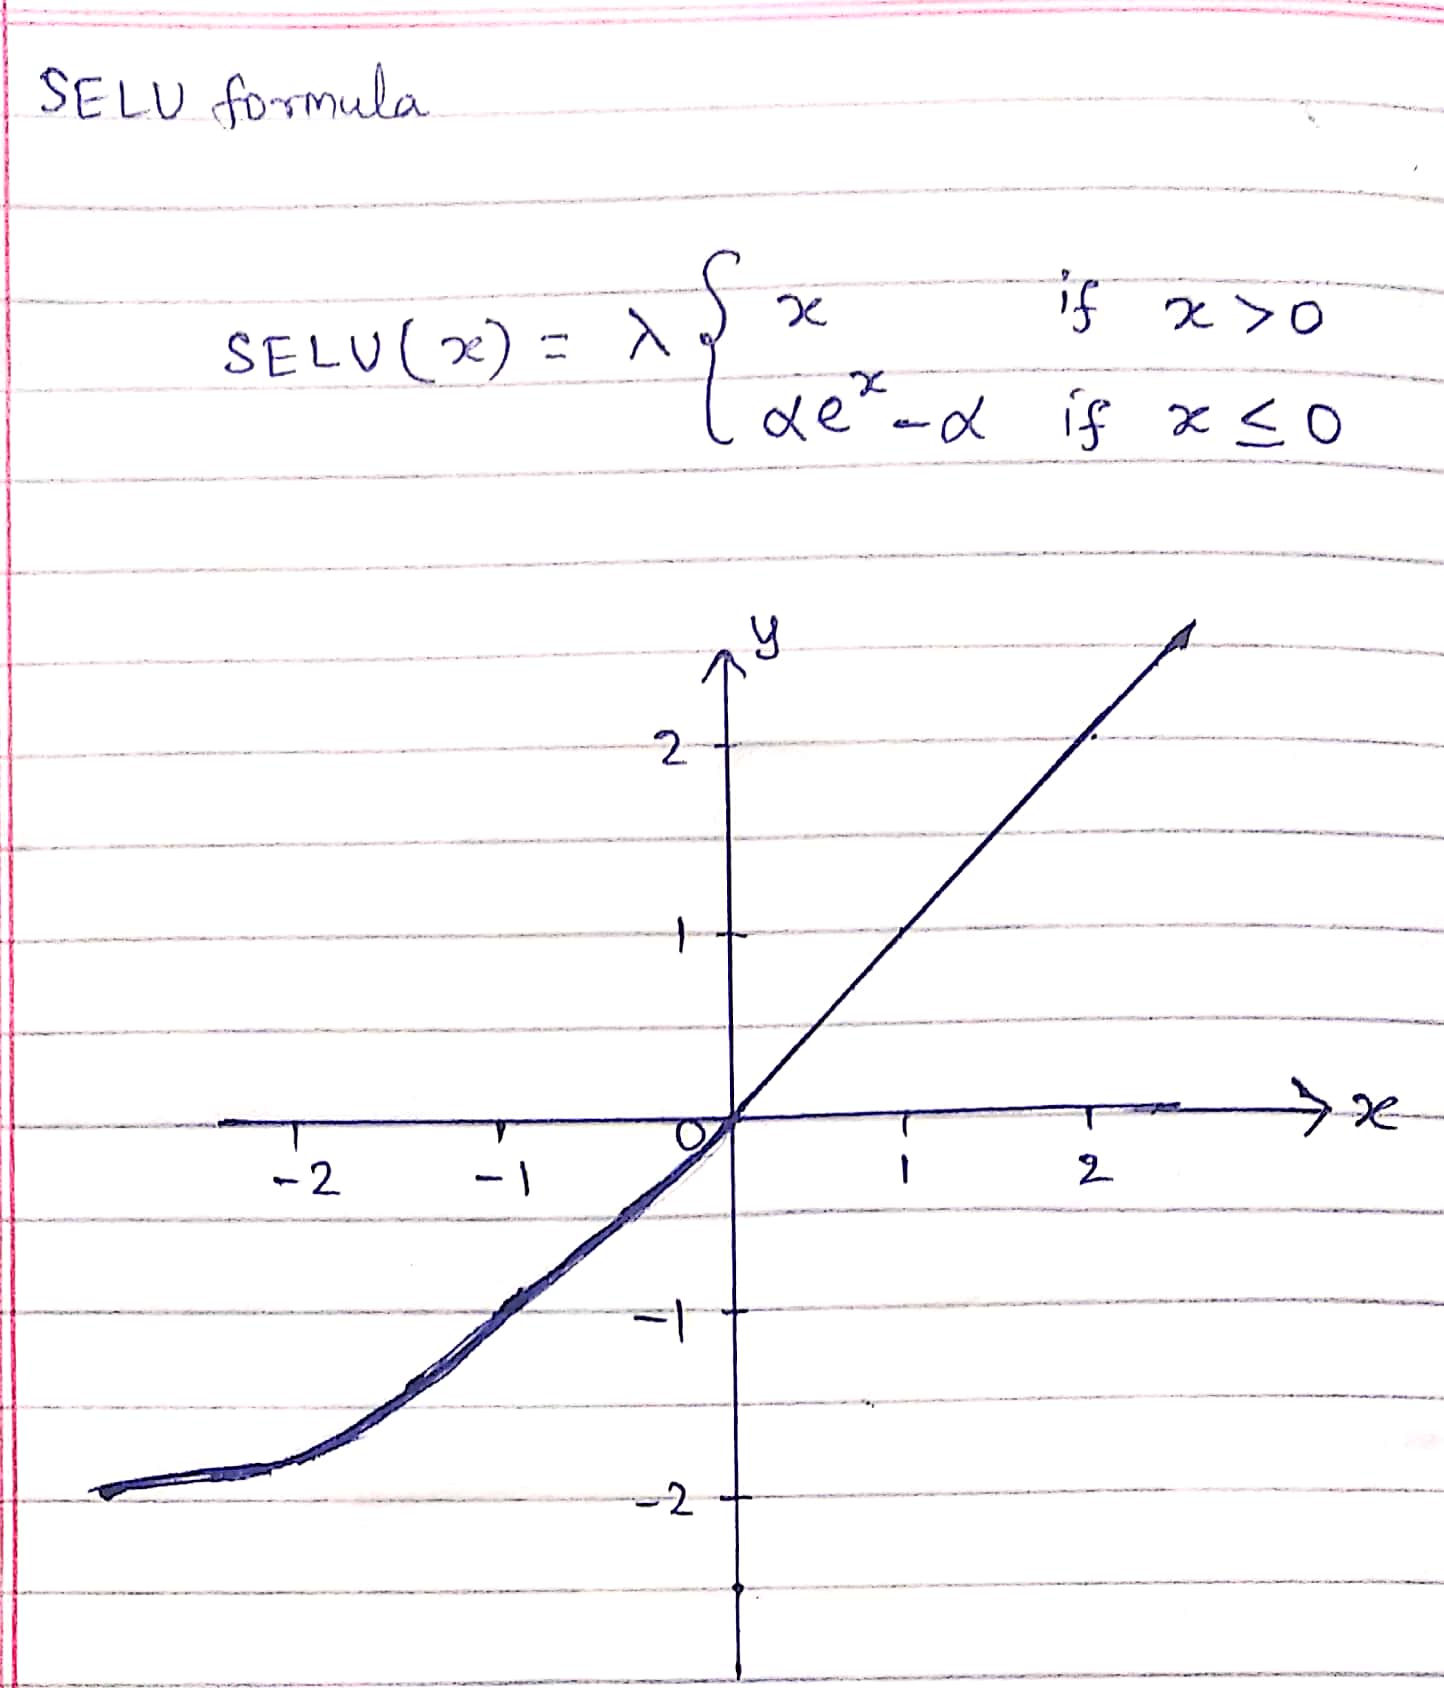 SELU formula
SELU(x) = λ { x if x > 0
αe^x - α if x ≤ 0
y
2
1
0
x
-2 -1 1 2
-1
-2